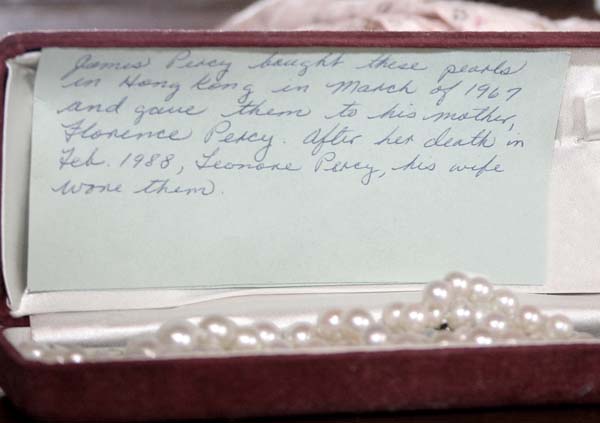 James Percy bought these pearls
in Hong Kong in March of 1967
and gave them to his mother,
Florence Percy. After her death in
Feb. 1988, Leonore Percy, his wife
wore them.